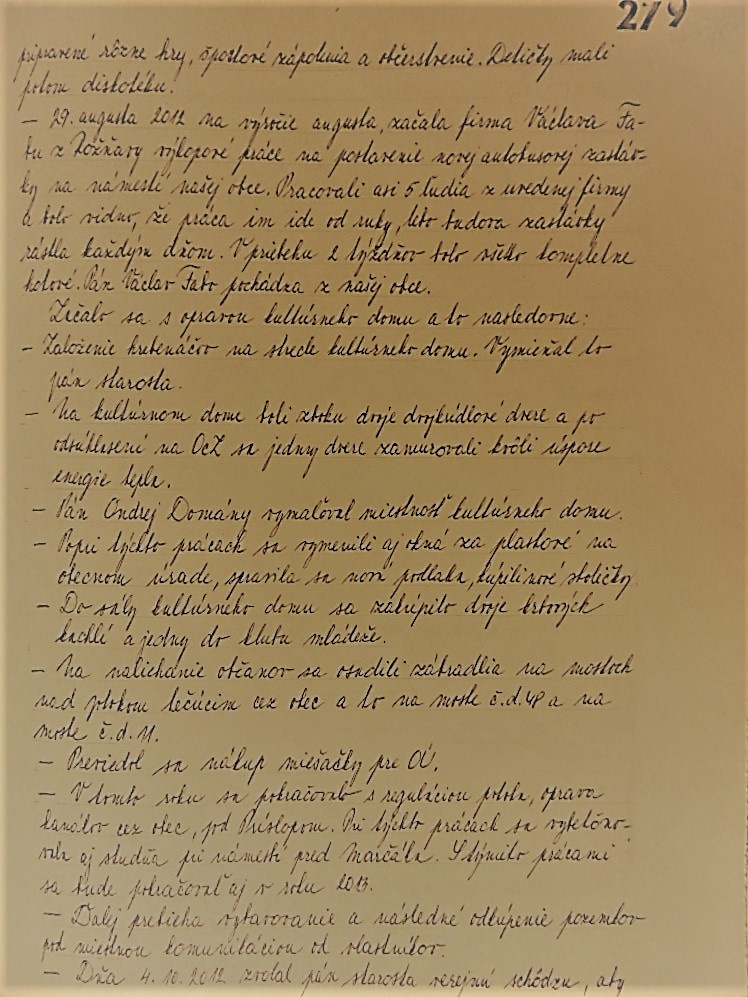 279
pripravené rôzne hry, športové zápolenia a občerstvenie. Detičky mali
potom diskotéku.
- 29. augusta 2012 na výročie augusta, začala firma Václava Fa-
bu z Rožňavy výkopové práce na postavenie novej autobusovej zastáv-
ky na námestí našej obce. Pracovali asi 5 ľudia z uvedenej firmy
a bolo vidno, že práca im ide od ruky, lebo budova zastávky
rástla každým dňom. V priebehu 2 týždňov bolo všetko kompletne
hotové. Pán Václav Fabo pochádza z našej obce.
Začalo sa s opravou kultúrneho domu a to nasledovne:
- Založenie hrebenáčov na streche kultúrneho domu. Vymieňal to
pán starosta.
- Na kultúrnom dome boli zboku dvoje dvojkrídlové dvere a po
odsúhlasení na OcZ sa jedny dvere zamurovali kvôli úspore
energie tepla.
- Pán Ondrej Domány vymaľoval miestnosť kultúrneho domu.
- Popri týchto prácach sa vymenili aj okná za plastové na
obecnom úrade, spravila sa nová podlaha, kúpili nové stoličky
- Do sály kultúrneho domu sa zakúpilo dvoje krbových
kachlí a jedny do klubu mládeže.
- Na naliehanie občanov sa osadili zábradlia na mostoch
nad potokom tečúcim cez obec a to na moste č.d. 48 a na
moste č.d. 11.
- Previedol sa nákup miešačky pre OÚ.
- V tomto roku sa pokračovalo s reguláciou potoka, oprava
kanálov cez obec, pod Príslopom. Pri týchto prácach sa vybetóno-
vala aj studňa pri námestí pred Marčáka. S týmito prácami
sa bude pokračovať aj v roku 2013.
- Ďalej prebieha vybavovanie a následné odkúpenie pozemkov
pod miestnou komunikáciou od vlastníkov.
- Dňa 4.10.2012 zvolal pán starosta verejnú schôdzu, aby